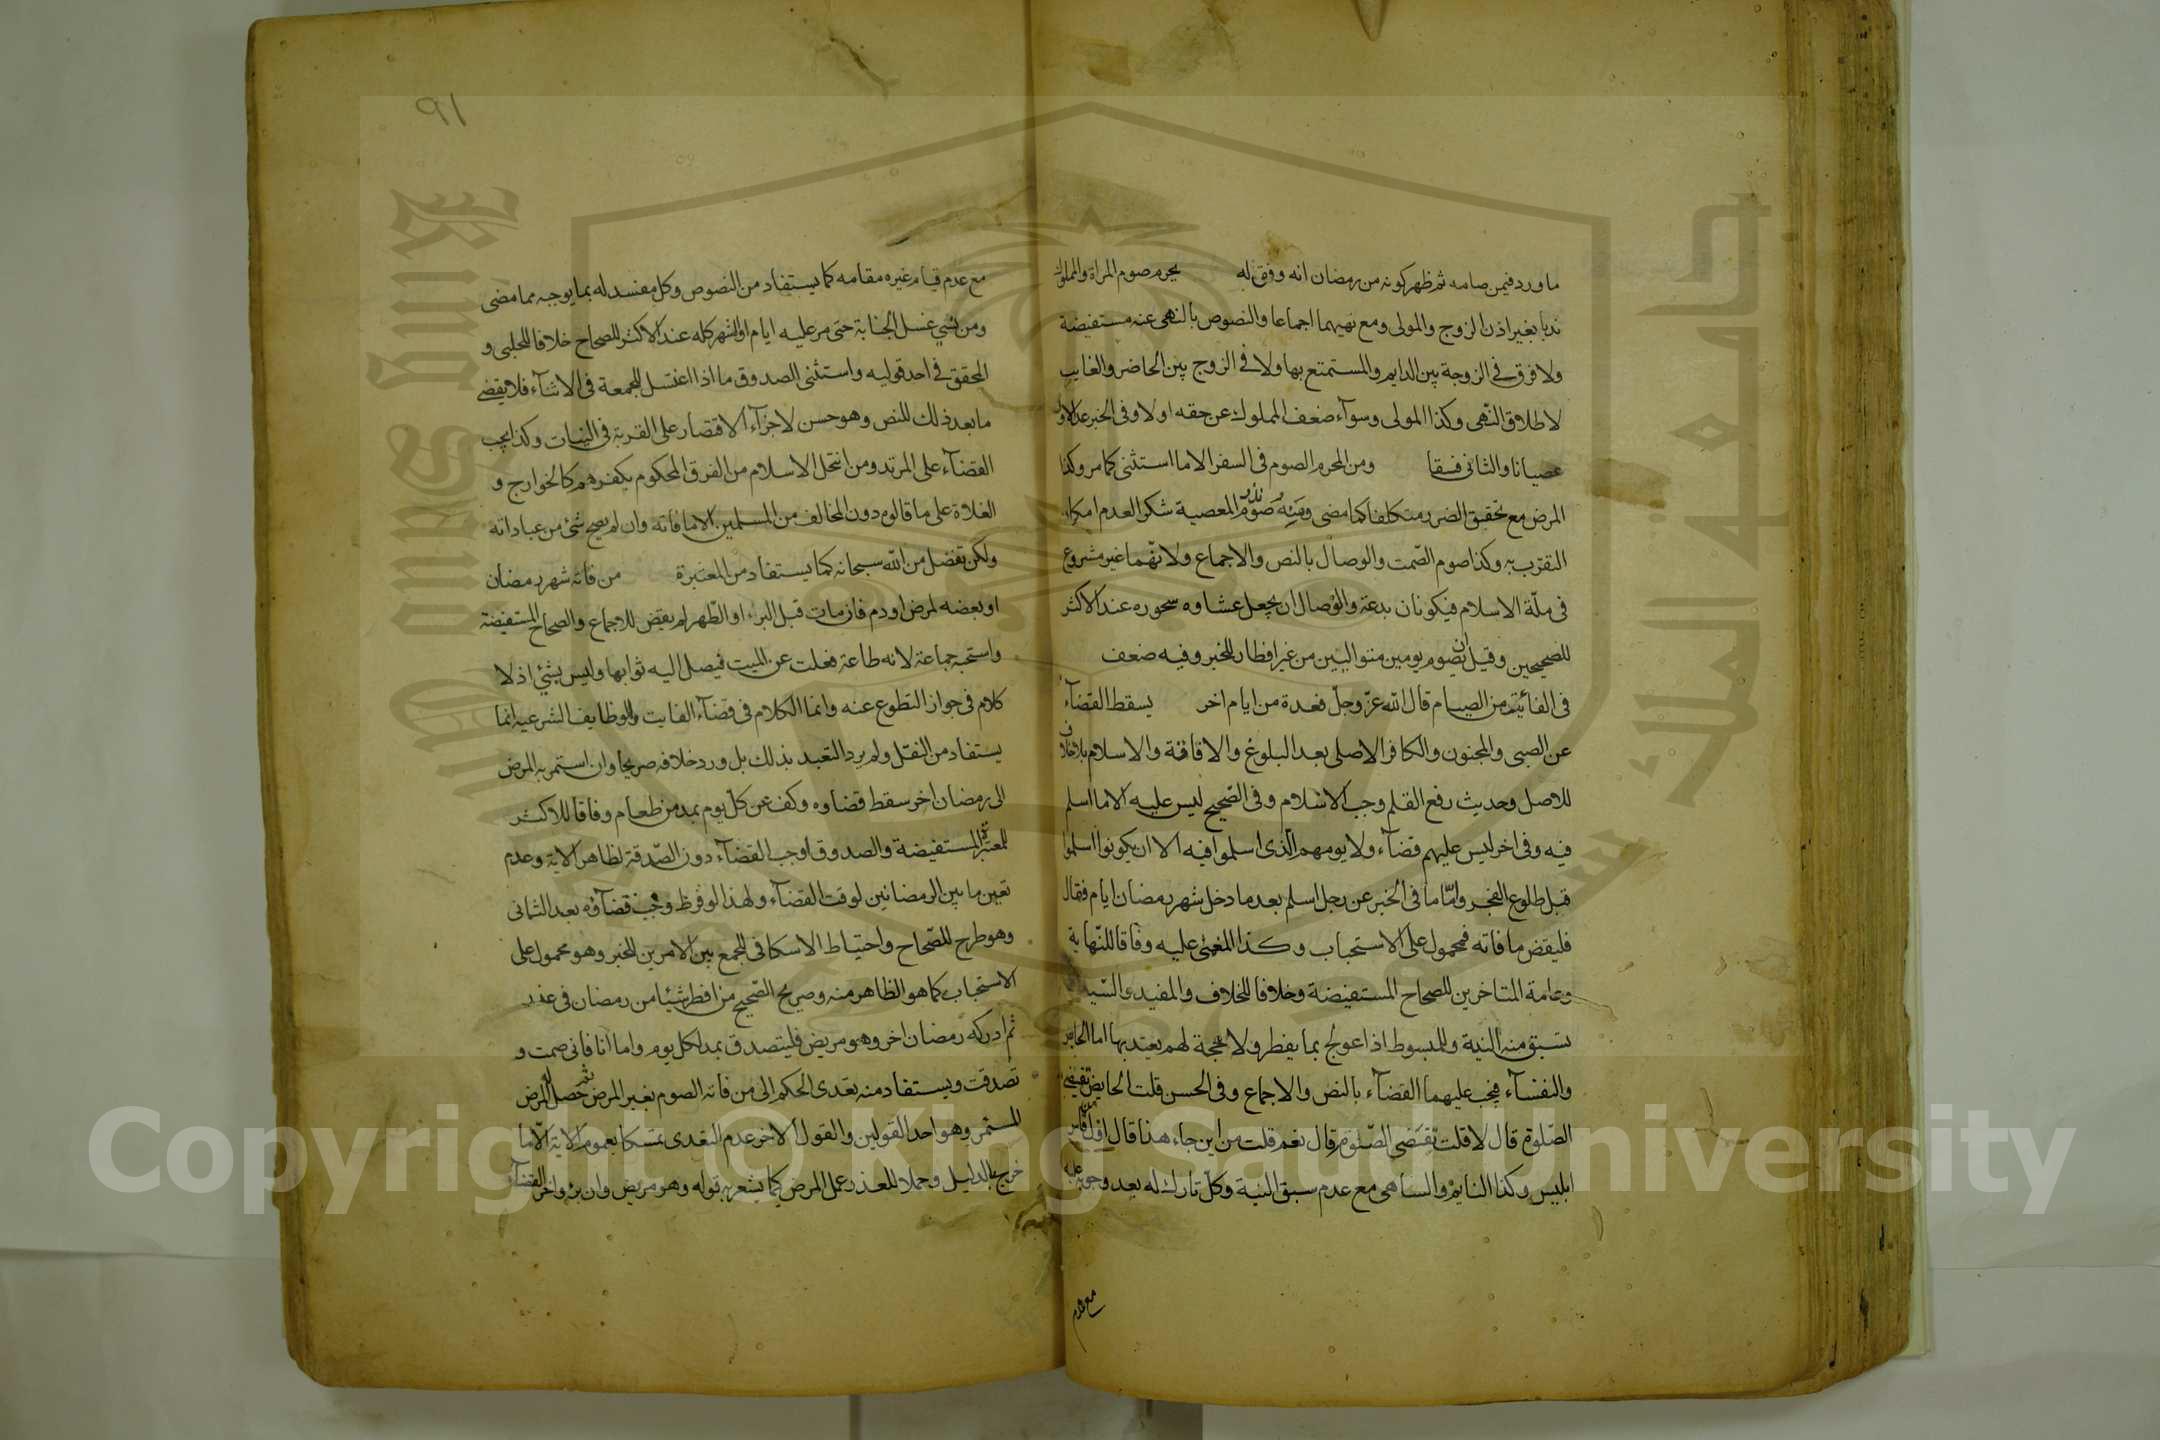 ما ورد فيمن صامه ثم ظهر كونه من رمضان انه وفق له يحرم صوم المراة والمملوك
ندبا بغير اذن الزوج والمولى ومع نهيهما اجماعا والنصوص بالنهى عنه مستفيضة
ولا فرق فى الزوجة بين الدايم والمستمتع بها ولا فى الزوج بين الحاضر والغايب
لاطلاق النهى وكذا المولى وسوآء ضعف المملوك عن حقه اولا وفى الخبر عد الاول
عصيانا والثانى فسقا ومن المحرم الصوم فى السفر الا ما استثنى كما مر وكذا
المرض مع تحقق الضرر متكلفا كما مضى ومنه صوم نذر المعصية شكرا لعدم امكان
التقرب به وكذا صوم الصمت والوصال بالنص والاجماع ولانهما غير مشروع
فى ملة الاسلام فيكونان بدعة والوصال ان يجعل عشاوه سحوره عند الاكثر
للصحيحين وقيل ان يصوم يومين متواليين من غير افطار للخبر وفيه ضعف
فى الفائتة من الصيام قال الله عز وجل فعدة من ايام اخر يسقط القضآء
عن الصبى والمجنون والكافر الاصلى بعد البلوغ والافاقة والاسلام بلا خلاف
للاصل وحديث رفع القلم وجب الاسلام وفى الصحيح ليس عليه الا ما اسلم
فيه وفى اخر ليس عليهم قضآء ولا يومهم الذى اسلموا فيه الا ان يكونوا اسلموا
قبل طلوع الفجر واما ما فى الخبر عن رجل اسلم بعد ما دخل شهر رمضان ايام فقال
فليقض ما فاته فمحمول على الاستحباب وكذا المغمى عليه وفاقا للنهاية
وعامة المتاخرين للصحاح المستفيضة وخلافا للخلاف والمفيد والسيد
تسبق منه النية وللمبسوط اذا عولج بما يفطر ولا حجة لهم يعتد بها اما الحايض
والنفسآء فيجب عليهما القضآء بالنص والاجماع وفى الحسن قلت الحايض تقضى
الصلوة قال لا قلت تقضى الصوم قال نعم قلت من اين جاء هذا قال اول من قاس
ابليس وكذا النايم والساهى مع عدم سبق النية وكل تارك له بعد وجوبه عليه
مع عدم
٩١
مع عدم قيام غيره مقامه كما يستفاد من النصوص وكل مفسد له بما يوجبه مما مضى
ومن نسي غسل الجنابة حتى مر عليه ايام او الشهر كله عند الاكثر للصحاح خلافا للحلبى و
المحقق فى احد قوليه واستثنى الصدوق ما اذا اغتسل للجمعة فى الاثنآء فلا يقضى
ما بعد ذلك للنص وهو حسن لاجزآء الاقتصار على القربة فى النيات وكذا يجب
القضآء على المرتد ومن انتحل الاسلام من الفرق المحكوم بكفرهم كالخوارج و
الغلاة على ما قالوه دون المخالف من المسلمين الا ما فاته وان لم يصح شئ من عباداته
ولكن تفضل من الله سبحانه كما يستفاد من المعتبرة من فاته شهر رمضان
او بعضه لمرض او دم فان مات قبل البرء او الطهر لم يقض للاجماع والصحاح المستفيضة
واستحبه جماعة لانه طاعة فعلت عن الميت فيصل اليه ثوابها وليس بشئ اذ لا
كلام فى جواز التطوع عنه وانما الكلام فى قضآء الفايت والوظايف الشرعية انما
يستفاد من النقل ولم يرد التعبد بذلك بل ورد خلافه صريحا وان استمر به المرض
الى رمضان اخر سقط قضاوه وكفر عن كل يوم بمد من طعام وفاقا للاكثر
للمعتبرة المستفيضة والصدوق اوجب القضآء دون الصدقة لظاهر الاية وعدم
تعين ما بين الرمضانين لوقت القضآء ولهذا لو فرط وجب قضآؤه بعد الثانى
وهو طرح للصحاح واحتياط الاسكافى للجمع بين الامرين للخبر وهو محمول على
الاستحباب كما هو الظاهر منه وصريح الصحيح من افطر شيئا من رمضان فى عذر
ثم ادركه رمضان اخر وهو مريض فليتصدق بمد لكل يوم واما انا فانى صمت و
تصدقت ويستفاد منه تعدى الحكم الى من فاته الصوم بغير المرض ثم حصل له المرض
المستمر وهو احد القولين والقول الاخر عدم التعدى تمسكا بعموم الاية الا ما
خرج بالدليل وحملا للعذر على المرض كما يشعر به قوله وهو مريض وان برء واخر القضآء
Copyright © King Saud University
King Saud University
جامعة الملك سعود